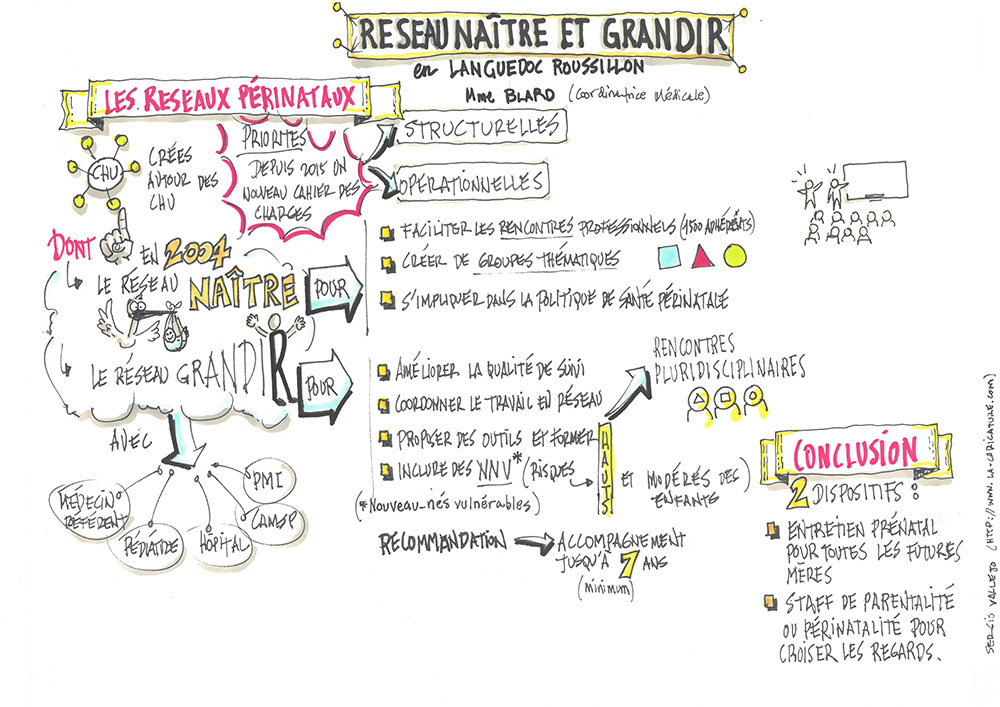 RESEAU NAÎTRE ET GRANDIR
en LANGUEDOC ROUSSILLON
Mme BLARD (Coordinatrice Médicale)
LES RESEAUX PÉRINATAUX
CHU
CRÉES
AUTOUR DES
CHU
PRIORITÉS
DEPUIS 2015 UN
NOUVEAU CAHIER DES
CHARGES
STRUCTURELLES
OPERATIONNELLES
DONT
EN 2004
LE RÉSEAU NAÎTRE
POUR
FACILITER LES RENCONTRES PROFESSIONNELS (1500 ADHÉRENTS)
CRÉER DE GROUPES THÉMATIQUES
S'IMPLIQUER DANS LA POLITIQUE DE SANTÉ PÉRINATALE
LE RÉSEAU GRANDIR
POUR
AMÉLIORER LA QUALITÉ DE SUIVI
COORDONNER LE TRAVAIL EN RÉSEAU
PROPOSER DES OUTILS ET FORMER
INCLURE DES NNV* (RISQUES
HAUTS
ET MODÉRÉS DES
ENFANTS)
(*Nouveau-nés vulnérables)
RENCONTRES
PLURIDISCIPLINAIRES
AVEC
MÉDECIN
RÉFÉRENT
PÉDIATRE
HÔPITAL
CAMSP
PMI
RECOMMANDATION
ACCOMPAGNEMENT
JUSQU'À 7 ANS
(minimum)
CONCLUSION
2 DISPOSITIFS :
ENTRETIEN PRÉNATAL
POUR TOUTES LES FUTURES
MÈRES
STAFF DE PARENTALITÉ
OU PÉRINATALITÉ POUR
CROISER LES REGARDS.
SERGIO VALLEJO (HTTP://WWW.LA-CARICATURE.COM)